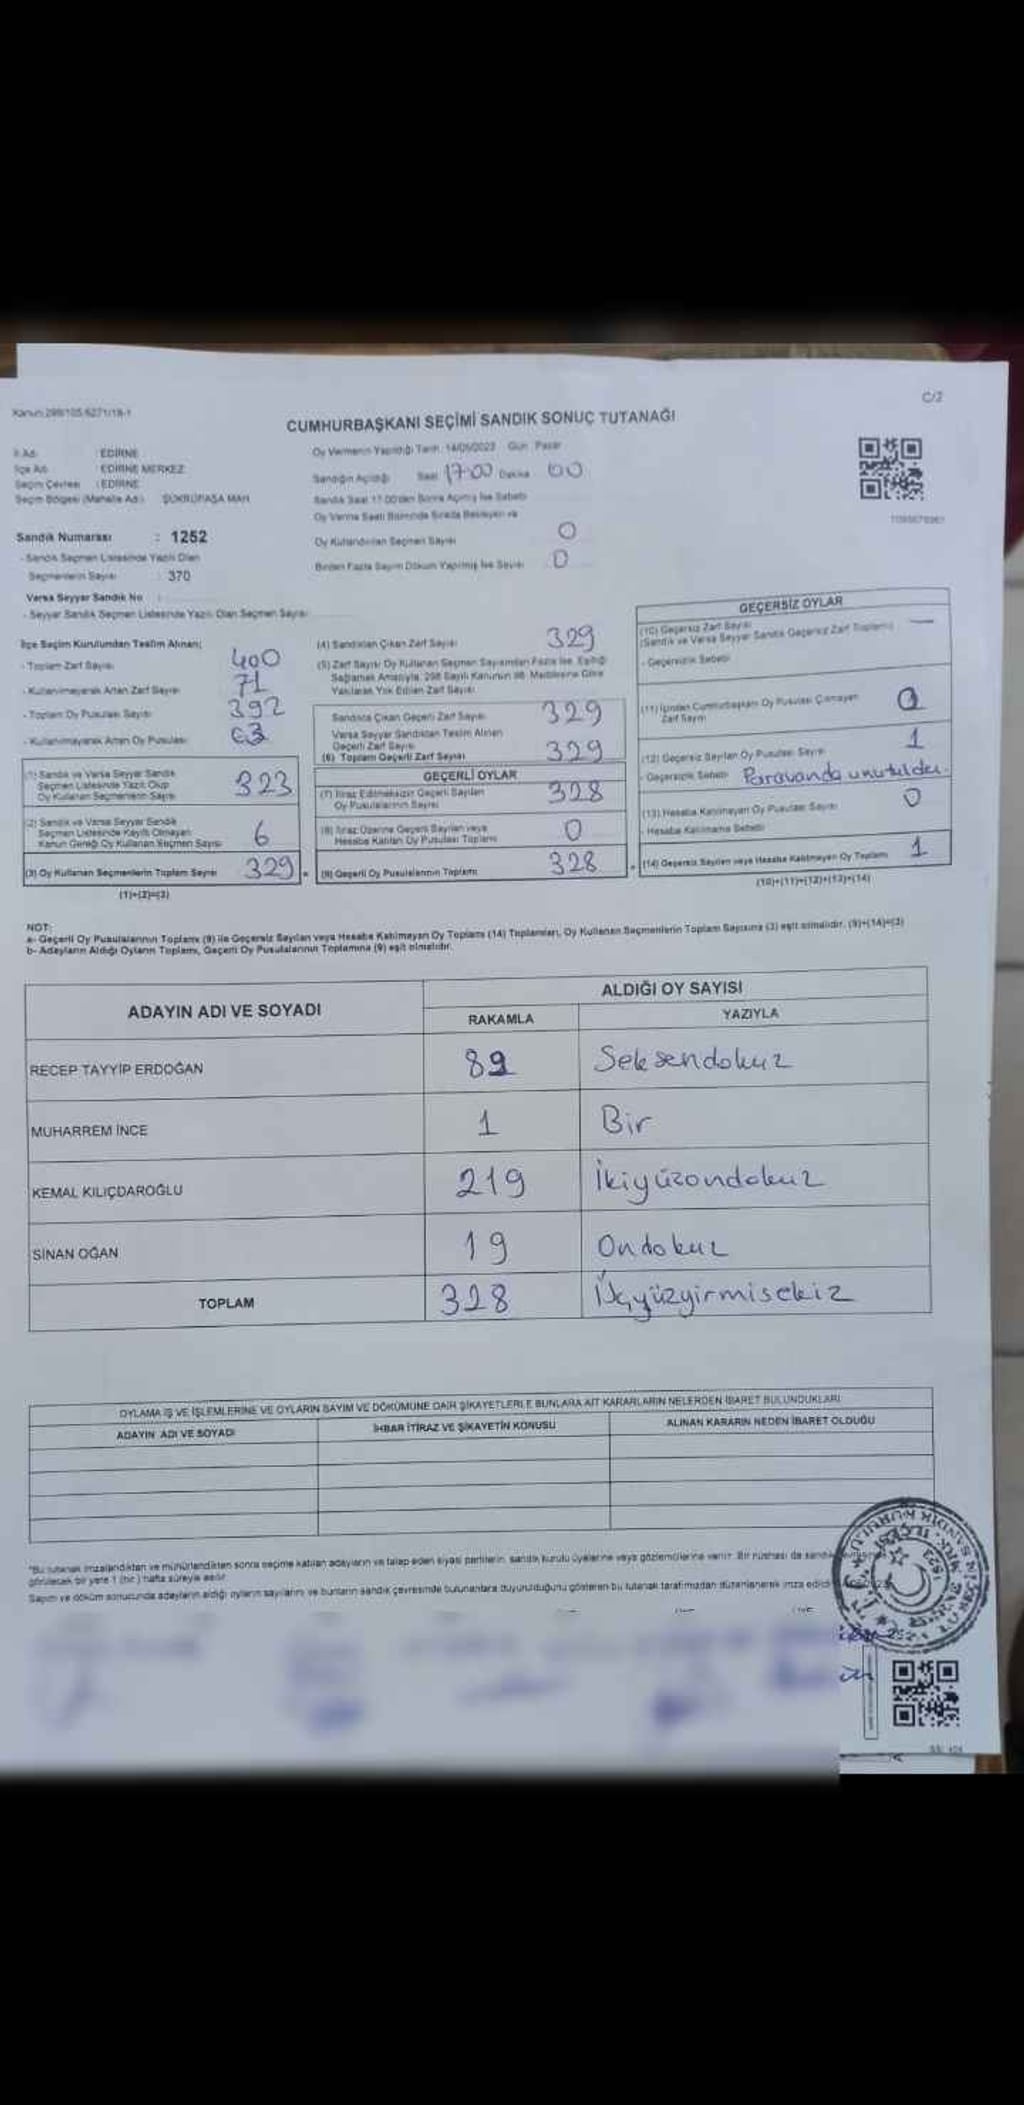 Kanun:298/105.6271/18-1
C/2
CUMHURBAŞKANI SEÇİMİ SANDIK SONUÇ TUTANAĞI
İl Adı : EDİRNE
İlçe Adı : EDİRNE MERKEZ
Seçim Çevresi : EDİRNE
Seçim Bölgesi (Mahalle Adı) : ŞÜKRÜPAŞA MAH
Oy Vermenin Yapıldığı Tarih: 14/05/2023 Gün: Pazar
Sandığın Açıldığı Saat 17:00 Dakika 00
Sandık Saat 17.00'den Sonra Açılmış İse Sebebi
Oy Verme Saati Bitiminde Sırada Bekleyen ve
Oy Kullandırılan Seçmen Sayısı 0
Birden Fazla Sayım Döküm Yapılmış İse Sayısı 0
Sandık Numarası : 1252
- Sandık Seçmen Listesinde Yazılı Olan
Seçmenlerin Sayısı : 370
Varsa Seyyar Sandık No :
- Seyyar Sandık Seçmen Listesinde Yazılı Olan Seçmen Sayısı
İlçe Seçim Kurulundan Teslim Alınan;
- Toplam Zarf Sayısı 400
- Kullanılmayarak Artan Zarf Sayısı 71
- Toplam Oy Pusulası Sayısı 392
- Kullanılmayarak Artan Oy Pusulası 63
(1) Sandık ve Varsa Seyyar Sandık
Seçmen Listesinde Yazılı Olup
Oy Kullanan Seçmenlerin Sayısı 323
(2) Sandık ve Varsa Seyyar Sandık
Seçmen Listesinde Kayıtlı Olmayan
Kanun Gereği Oy Kullanan Seçmen Sayısı 6
(3) Oy Kullanan Seçmenlerin Toplam Sayısı 329
(1)+(2)=(3)
(4) Sandıktan Çıkan Zarf Sayısı 329
(5) Zarf Sayısı Oy Kullanan Seçmen Sayısından Fazla İse, Eşitliği
Sağlamak Amacıyla, 298 Sayılı Kanunun 98. Maddesine Göre
Yakılarak Yok Edilen Zarf Sayısı
Sandıkta Çıkan Geçerli Zarf Sayısı 329
Varsa Seyyar Sandıktan Teslim Alınan
Geçerli Zarf Sayısı
(6) Toplam Geçerli Zarf Sayısı 329
GEÇERLİ OYLAR
(7) İtiraz Edilmeksizin Geçerli Sayılan
Oy Pusulalarının Sayısı 328
(8) İtiraz Üzerine Geçerli Sayılan veya
Hesaba Katılan Oy Pusulası Toplamı 0
(9) Geçerli Oy Pusulalarının Toplamı 328
GEÇERSİZ OYLAR
(10) Geçersiz Zarf Sayısı
(Sandık ve Varsa Seyyar Sandık Geçersiz Zarf Toplamı) —
- Geçersizlik Sebebi
(11) İçinden Cumhurbaşkanı Oy Pusulası Çıkmayan
Zarf Sayısı
(12) Geçersiz Sayılan Oy Pusulası Sayısı 1
- Geçersizlik Sebebi Paravanda unutuldu.
(13) Hesaba Katılmayan Oy Pusulası Sayısı 0
- Hesaba Katılmama Sebebi
(14) Geçersiz Sayılan veya Hesaba Katılmayan Oy Toplamı 1
(10)+(11)+(12)+(13)=(14)
NOT:
a- Geçerli Oy Pusulalarının Toplamı (9) ile Geçersiz Sayılan veya Hesaba Katılmayan Oy Toplamı (14) Toplamları, Oy Kullanan Seçmenlerin Toplam Sayısına (3) eşit olmalıdır. (9)+(14)=(3)
b- Adayların Aldığı Oyların Toplamı, Geçerli Oy Pusulalarının Toplamına (9) eşit olmalıdır.
ADAYIN ADI VE SOYADI
ALDIĞI OY SAYISI
RAKAMLA YAZIYLA
RECEP TAYYİP ERDOĞAN 89 Seksendokuz
MUHARREM İNCE 1 Bir
KEMAL KILIÇDAROĞLU 219 İkiyüzondokuz
SİNAN OĞAN 19 Ondokuz
TOPLAM 328 Üçyüzyirmisekiz
OYLAMA İŞ VE İŞLEMLERİNE VE OYLARIN SAYIM VE DÖKÜMÜNE DAİR ŞİKAYETLERLE BUNLARA AİT KARARLARIN NELERDEN İBARET BULUNDUKLARI
ADAYIN ADI VE SOYADI İHBAR İTİRAZ VE ŞİKAYETİN KONUSU ALINAN KARARIN NEDEN İBARET OLDUĞU
*Bu tutanak imzalandıktan ve mühürlendikten sonra seçime katılan adayların ve talep eden siyasi partilerin, sandık kurulu üyelerine veya gözlemcilerine verilir. Bir nüshası da sandık
görülecek bir yere 1 (bir) hafta süreyle asılır.
Sayım ve döküm sonucunda adayların aldığı oyların sayılarını ve bunların sandık çevresinde bulunanlara duyurulduğunu gösteren bu tutanak tarafımızdan düzenlenerek imza edildi